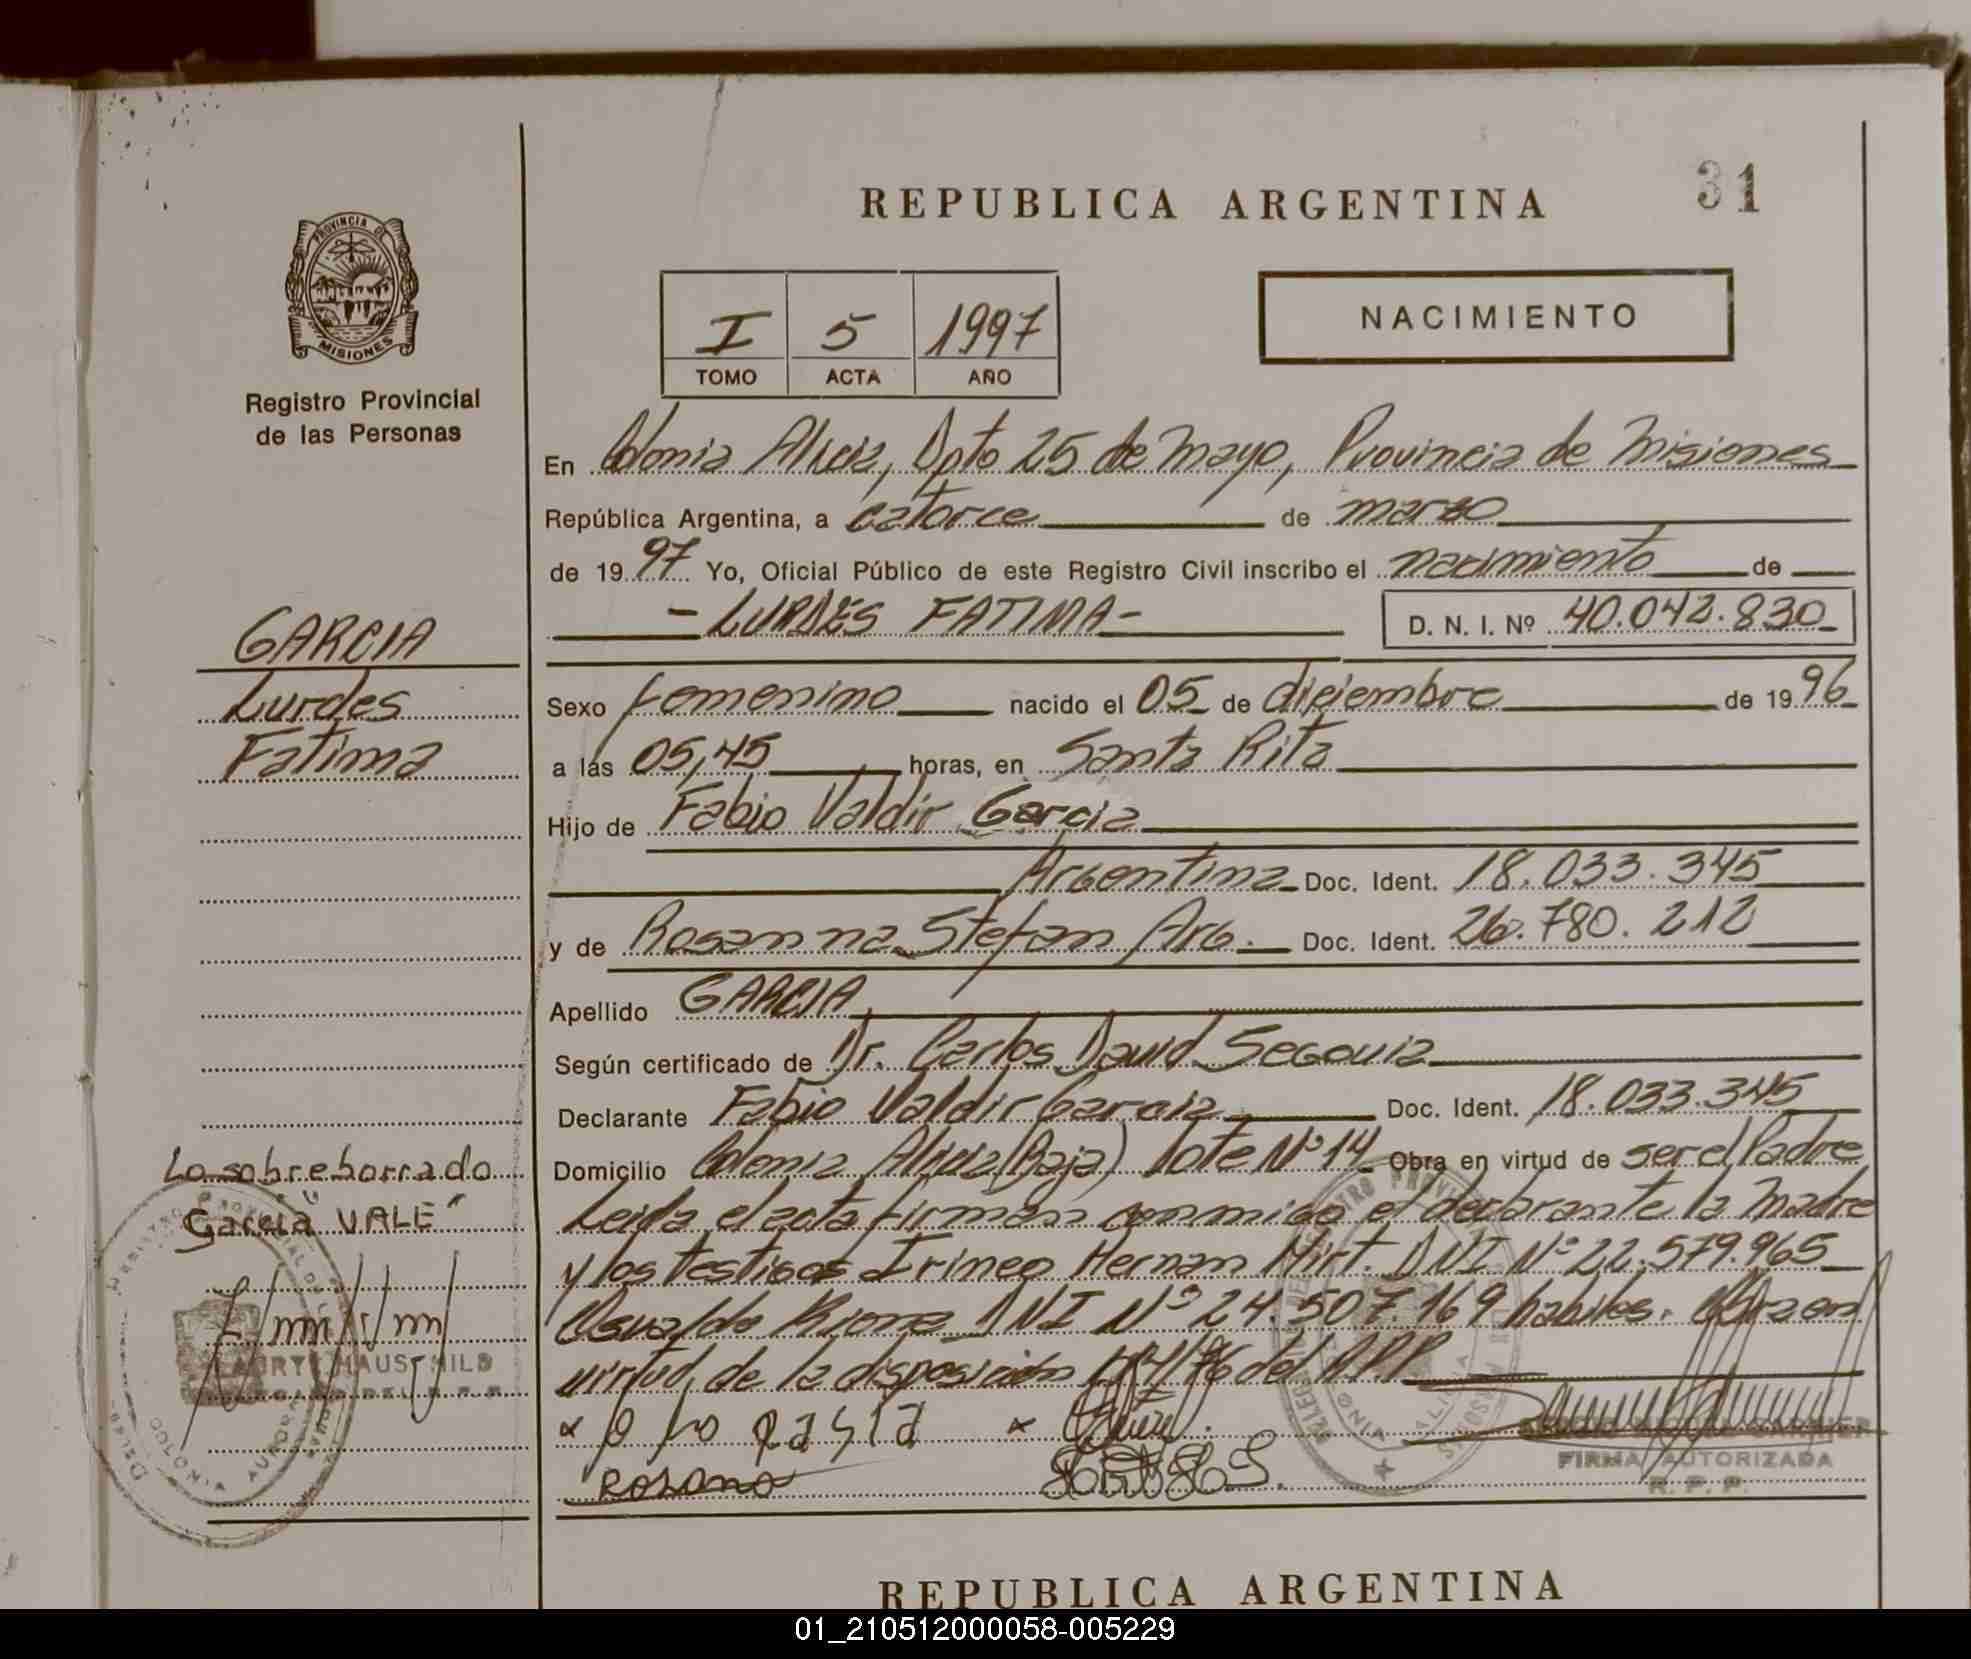 REPUBLICA ARGENTINA
31
PROVINCIA DE
MISIONES
Registro Provincial
de las Personas
I 5 1997
TOMO ACTA AÑO
NACIMIENTO
En Colonia Alicia, Dpto 25 de Mayo, Provincia de Misiones
República Argentina, a catorce de marzo
de 1997 Yo, Oficial Público de este Registro Civil inscribo el nacimiento de
- LURDES FATIMA -
D. N. I. Nº 40.042.830
GARCIA
Lurdes
Fatima
Sexo femenino nacido el 05 de diciembre de 1996
a las 05,45 horas, en Santa Rita
Hijo de Fabio Valdir Garcia
Argentina Doc. Ident. 18.033.345
y de Rosanna Stefan Arg. Doc. Ident. 26.780.212
Apellido GARCIA
Según certificado de Dr. Carlos David Segovia
Declarante Fabio Valdir Garcia Doc. Ident. 18.033.345
Domicilio Colonia Alicia (Baja) lote Nº 14 Obra en virtud de ser el Padre
Leida el acta firman conmigo el declarante la Madre
y los testigos Irineo Hernan Hirt. DNI Nº 22.579.965
Osvaldo DNI Nº 24.507.169 habiles. Obra en
virtud de la disposición del RPP
Rosana
Lo sobreborrado
Garcia "VALE"
FIRMA AUTORIZADA
R. P. P.
REPUBLICA ARGENTINA
01_210512000058-005229